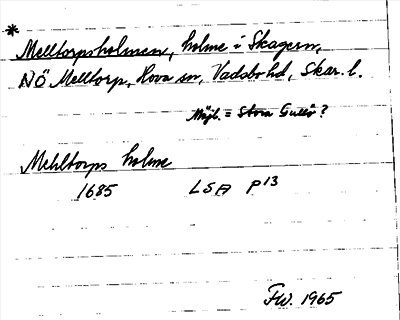 *
Melltorpsholmen, holme i Skagern,
NÖ Melltorp, Hova sn, Vadsbo hd, Skar. l.
Möjl. = Stora Gullö?
Mehltorps holme
1685 LSA P13
FW. 1965